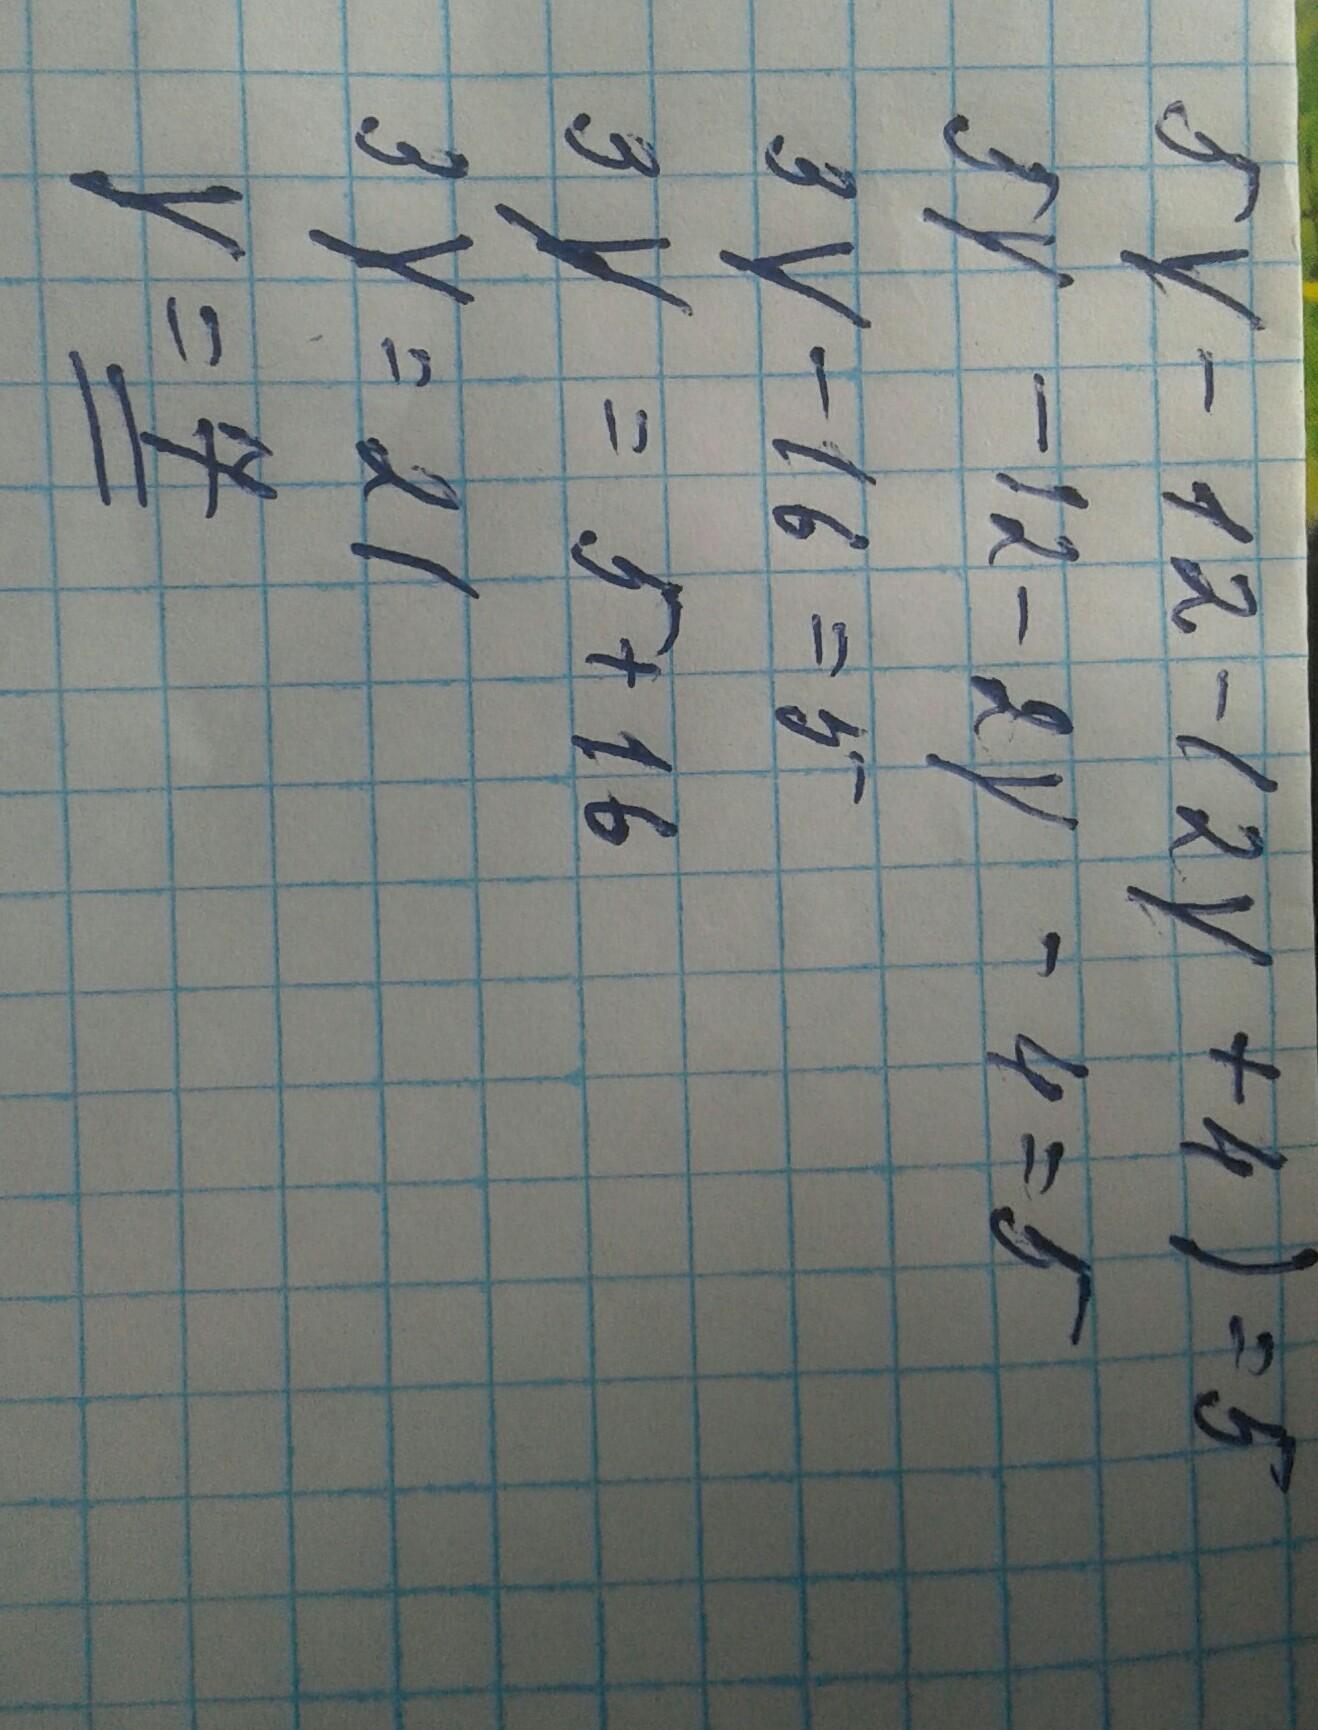 5y - 12 - (2y + 4) = 5
5y - 12 - 2y - 4 = 5
3y - 16 = 5
3y = 5 + 16
3y = 21
y = 7